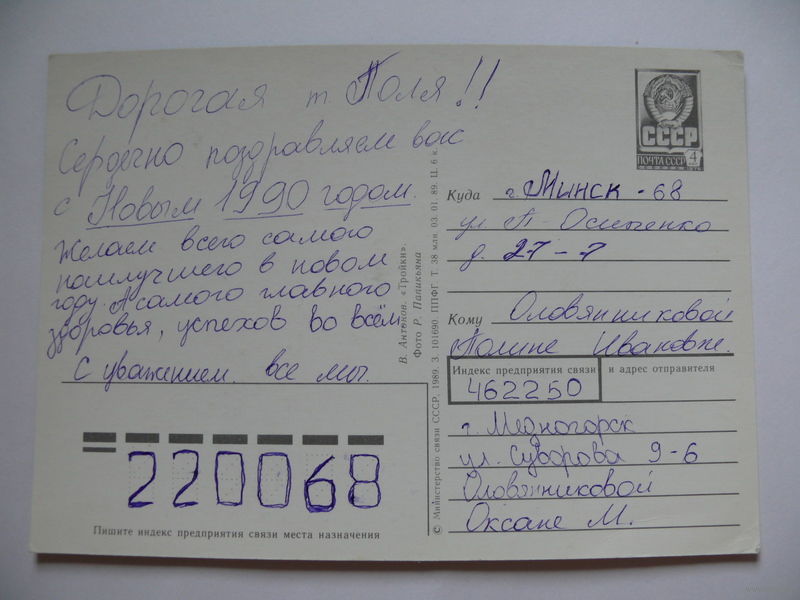 Дорогая т. Поля!!
Сердечно поздравляем вас
с Новым 1990 годом.
Желаем всего самого
наилучшего в новом
году. А самого главного
здоровья, успехов во всём
С уважением все мы.
220068
Пишите индекс предприятия связи места назначения
В. Антонов. «Тройки».
Фото Р. Папикьяна
© Министерство связи СССР, 1989. З. 101690. ППФГ Т. 38 млн. 03. 01. 89. Ц. 6 к.
СССР
ПОЧТА СССР 4
Куда г. Минск - 68
ул. П. Осипенко
д. 27 - 7
Кому Оловянниковой
Полине Ивановне.
Индекс предприятия связи и адрес отправителя
462250
г. Медногорск
ул. Суворова 9-6
Оловянниковой
Оксане М.